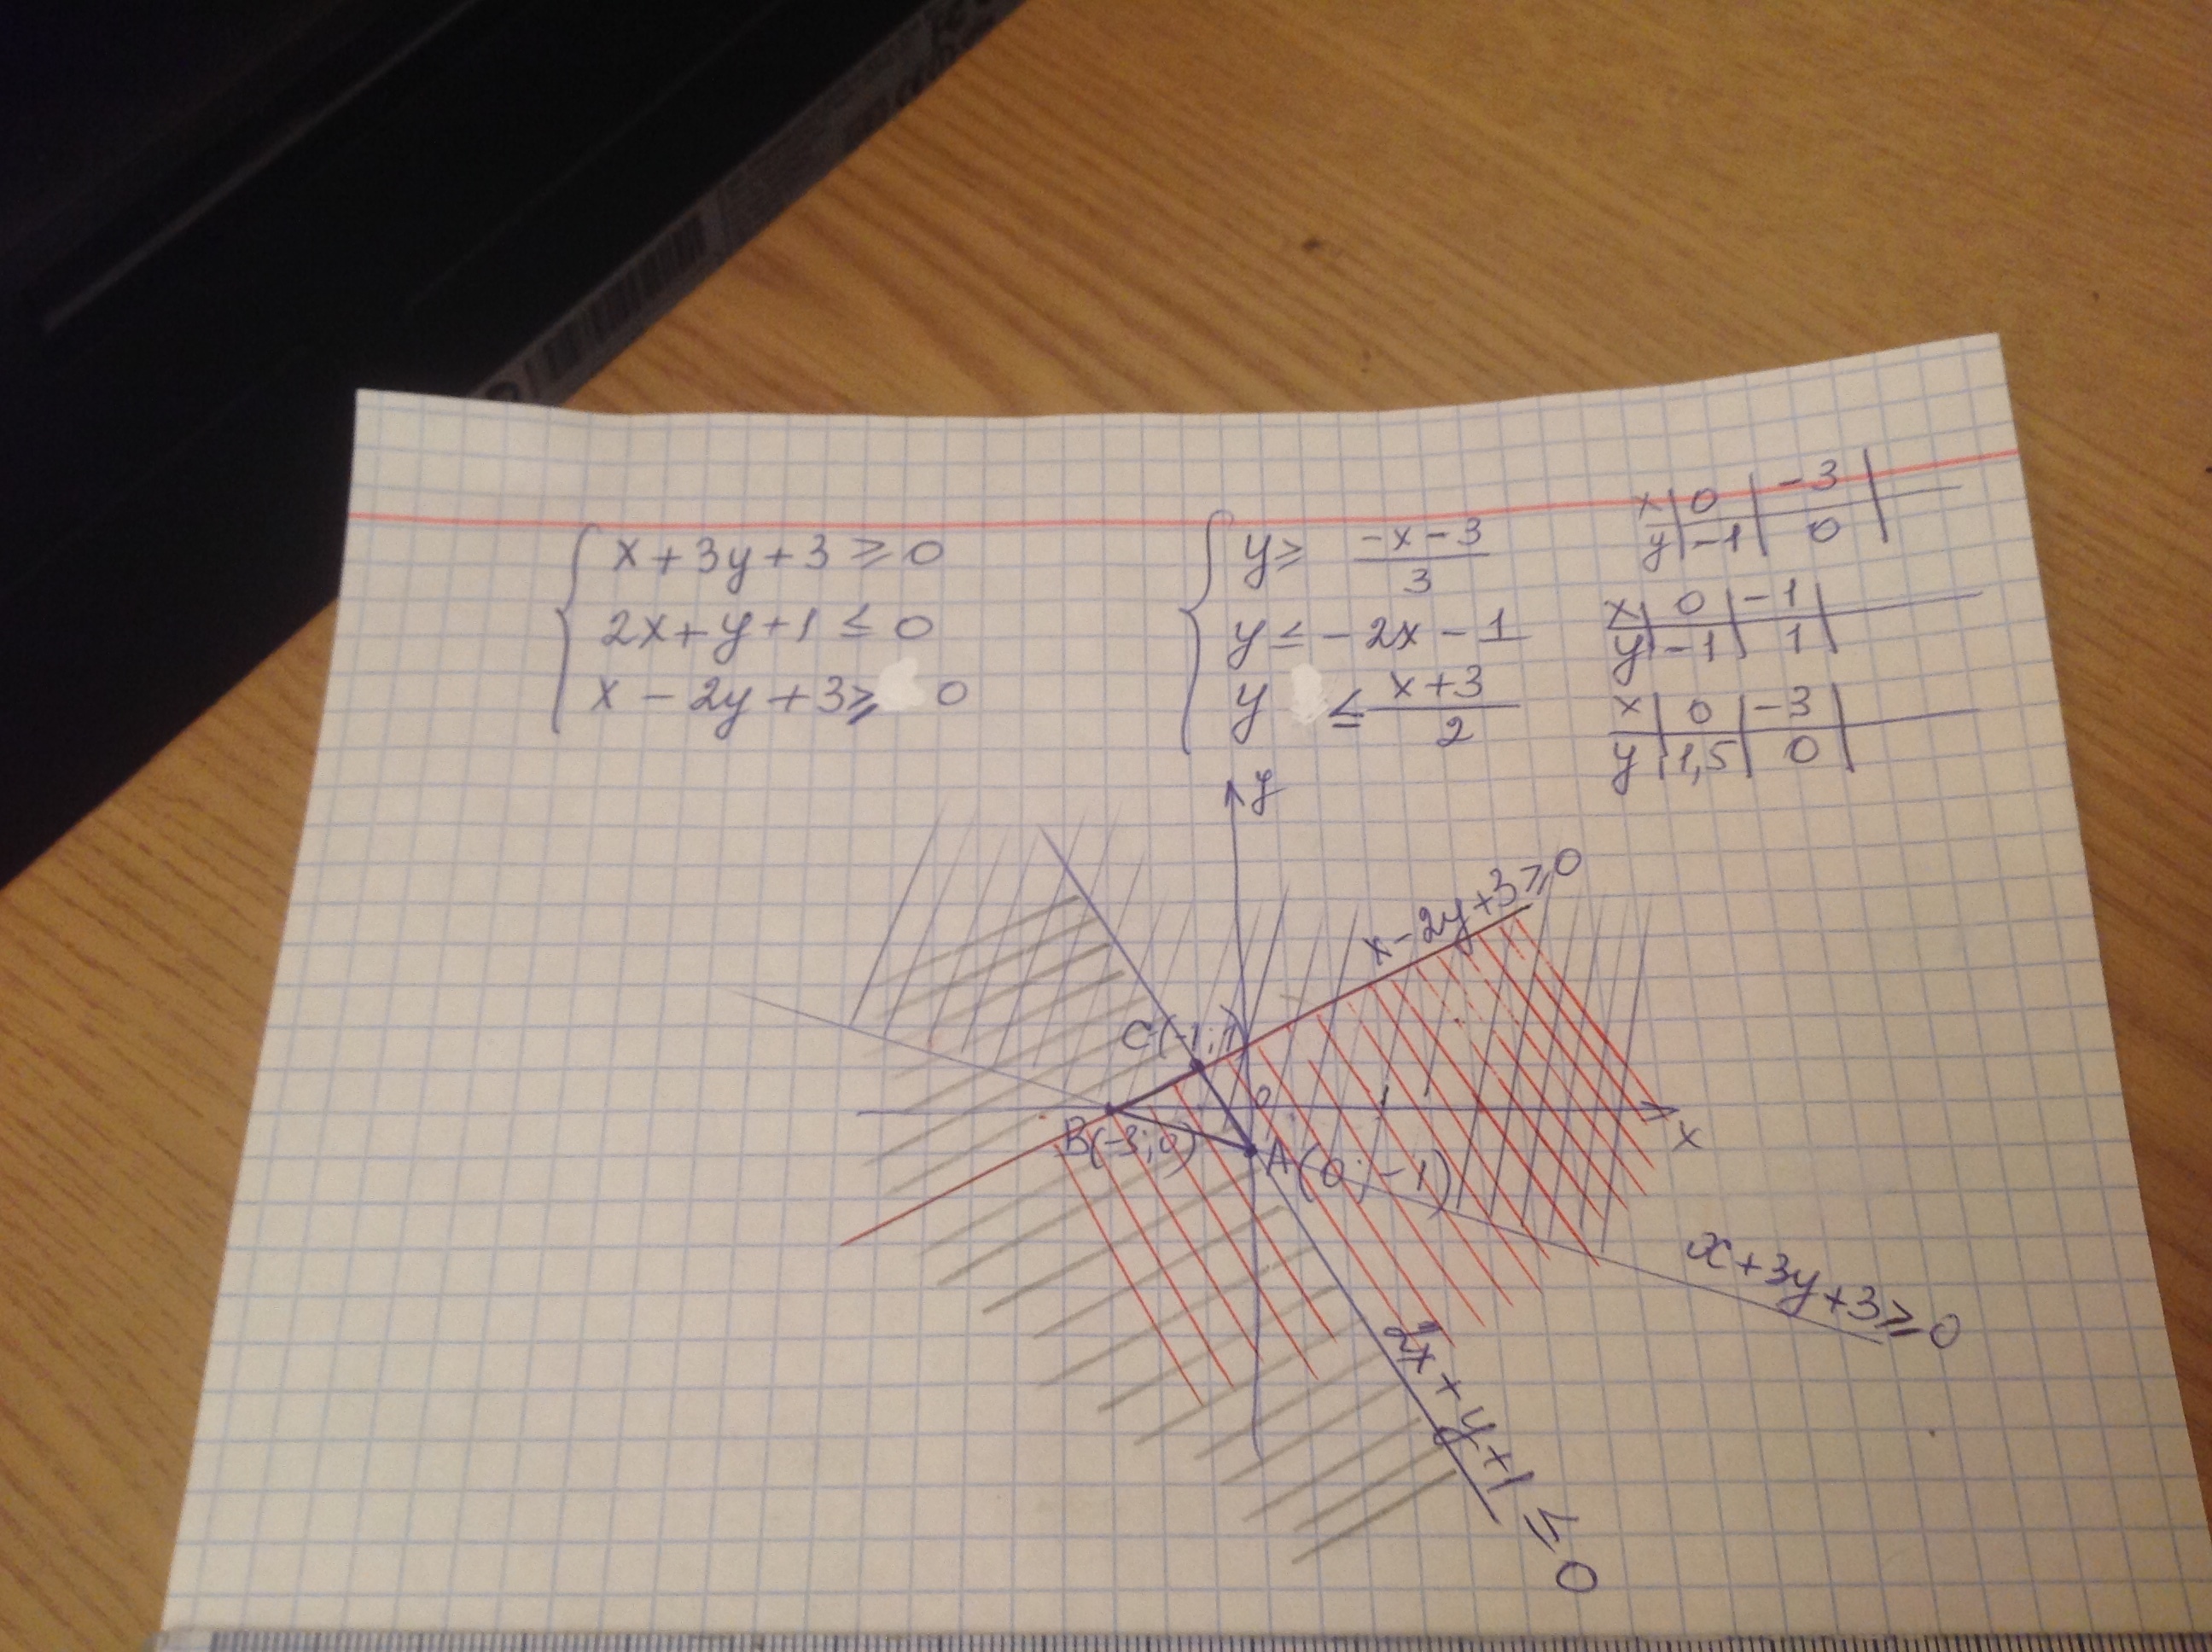 x + 3y + 3 ⩾ 0
2x + y + 1 ≤ 0
x - 2y + 3 ⩾ 0
y ⩾ (-x - 3)/3
y ≤ - 2x - 1
y ≤ (x + 3)/2
x | 0 | -3 |
y | -1 | 0 |
x | 0 | -1 |
y | -1 | 1 |
x | 0 | -3 |
y | 1,5 | 0 |
y
x - 2y + 3 ⩾ 0
C(-1; 1)
0
1
x
B(-3; 0)
A(0; -1)
x + 3y + 3 ⩾ 0
2x + y + 1 ≤ 0